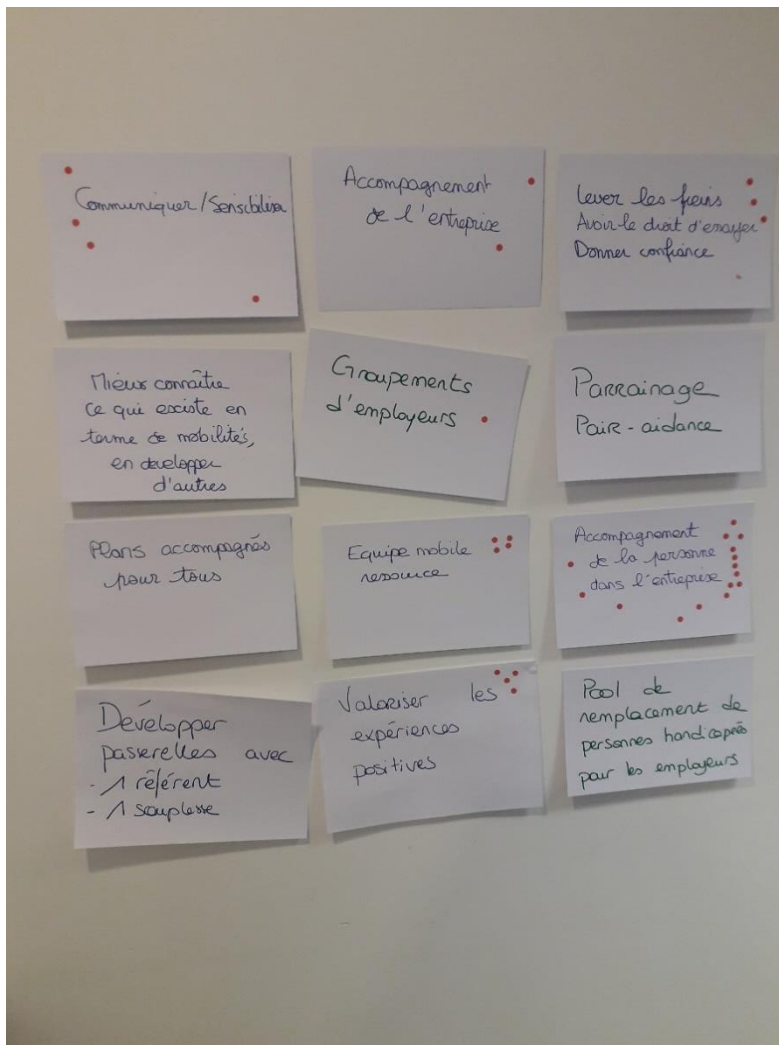 Communiquer/Sensibiliser
Accompagnement
de l'entreprise
Lever les freins
Avoir le droit d'essayer
Donner confiance
Mieux connaître
ce qui existe en
terme de mobilités,
en developper
d'autres
Groupements
d'employeurs
Parrainage
Pair-aidance
Plans accompagnés
pour tous
Equipe mobile
ressource
Accompagnement
de la personne
dans l'entreprise
Développer
passerelles avec
- 1 référent
- 1 souplesse
Valoriser les
expériences
positives
Pool de
remplacement de
personnes handicapées
pour les employeurs